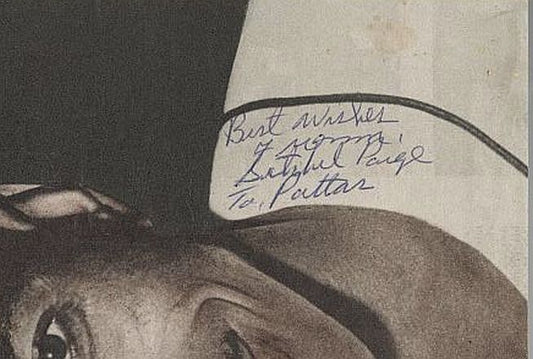 Best Wishes
Satchel Paige
To, Pattas